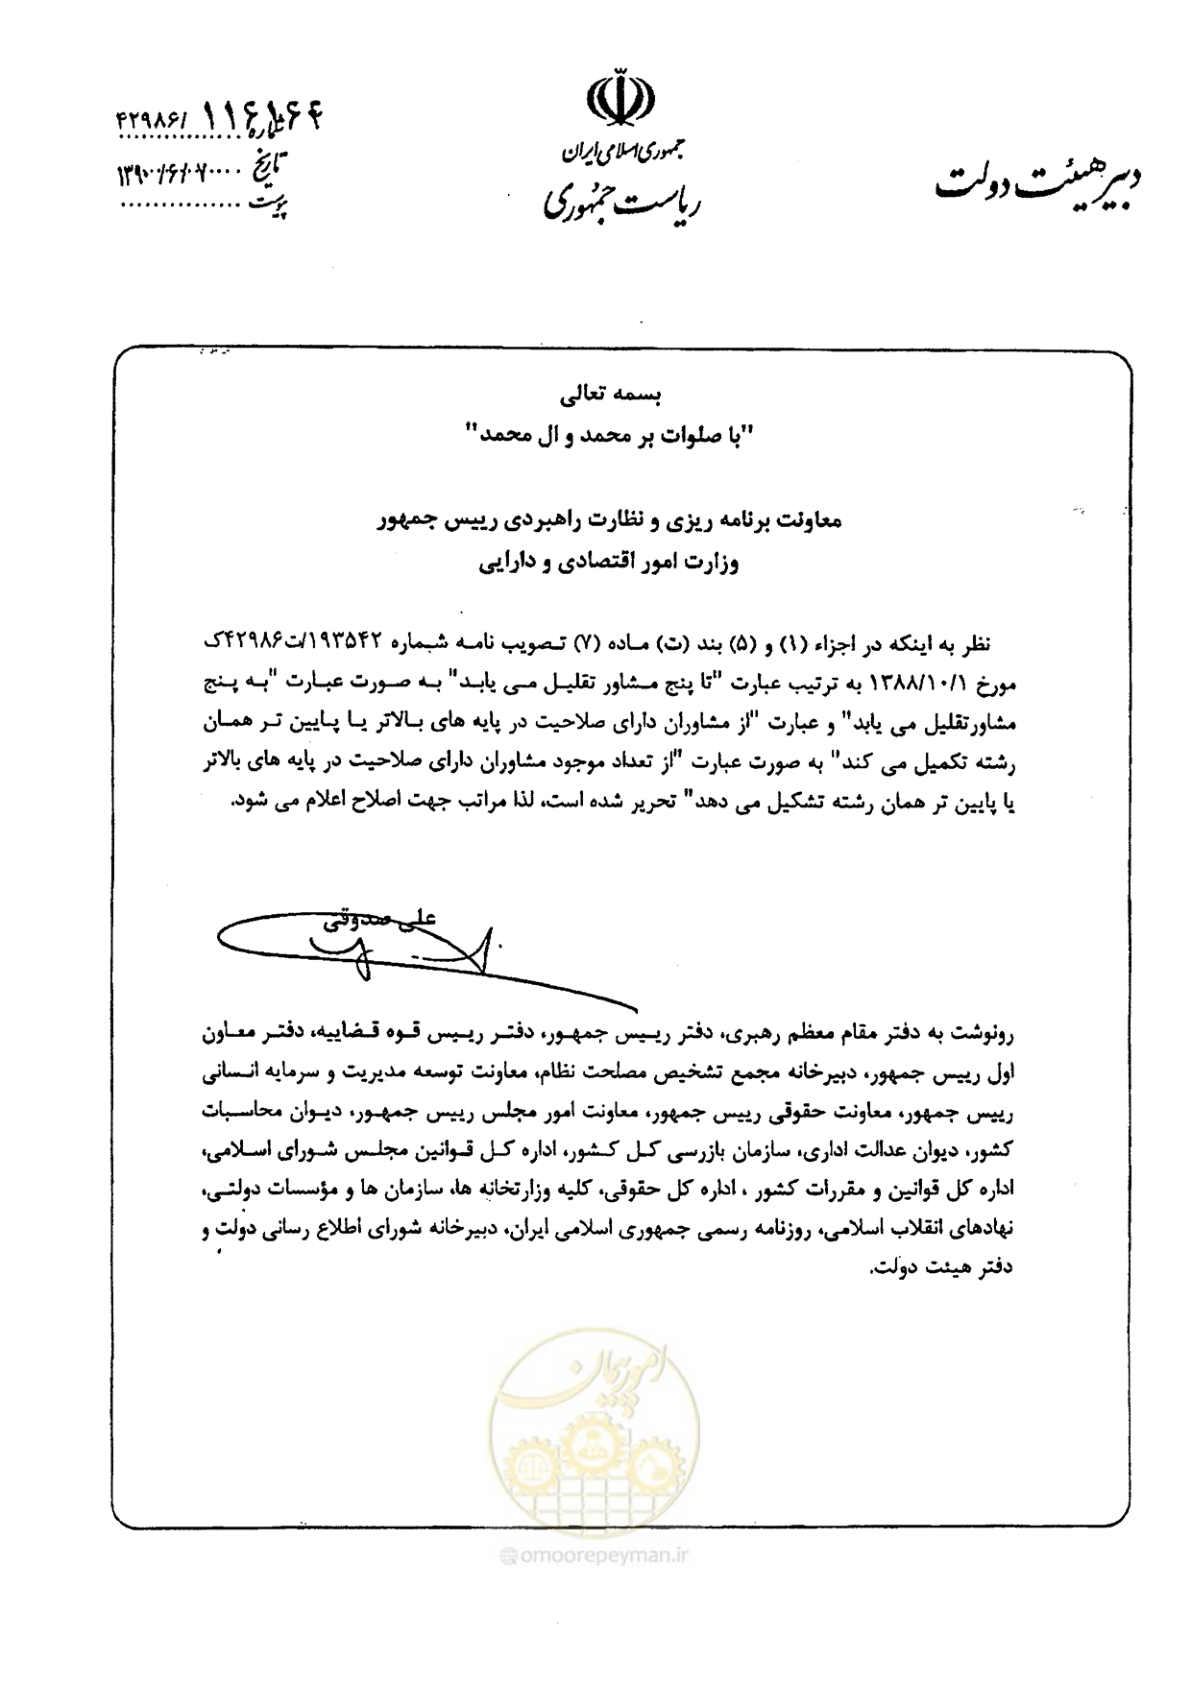 دبیر هیئت دولت
جمهوری اسلامی ایران
ریاست جمهوری
شماره ۱۱۶۱۶۴/۴۲۹۸۶
تاریخ ۱۳۹۰/۶/۰۷
پیوست
بسمه تعالی
"با صلوات بر محمد و ال محمد"
معاونت برنامه ریزی و نظارت راهبردی رییس جمهور
وزارت امور اقتصادی و دارایی
نظر به اینکه در اجزاء (۱) و (۵) بند (ت) ماده (۷) تصویب نامه شماره ۱۹۳۵۴۲/ت۴۲۹۸۶ک
مورخ ۱۳۸۸/۱۰/۱ به ترتیب عبارت "تا پنج مشاور تقلیل می یابد" به صورت عبارت "به پنج
مشاورتقلیل می یابد" و عبارت "از مشاوران دارای صلاحیت در پایه های بالاتر یا پایین تر همان
رشته تکمیل می کند" به صورت عبارت "از تعداد موجود مشاوران دارای صلاحیت در پایه های بالاتر
یا پایین تر همان رشته تشکیل می دهد" تحریر شده است، لذا مراتب جهت اصلاح اعلام می شود.
علی صدوقی
رونوشت به دفتر مقام معظم رهبری، دفتر رییس جمهور، دفتر رییس قوه قضاییه، دفتر معاون
اول رییس جمهور، دبیرخانه مجمع تشخیص مصلحت نظام، معاونت توسعه مدیریت و سرمایه انسانی
رییس جمهور، معاونت حقوقی رییس جمهور، معاونت امور مجلس رییس جمهور، دیوان محاسبات
کشور، دیوان عدالت اداری، سازمان بازرسی کل کشور، اداره کل قوانین مجلس شورای اسلامی،
اداره کل قوانین و مقررات کشور ، اداره کل حقوقی، کلیه وزارتخانه ها، سازمان ها و مؤسسات دولتی،
نهادهای انقلاب اسلامی، روزنامه رسمی جمهوری اسلامی ایران، دبیرخانه شورای اطلاع رسانی دولت و
دفتر هیئت دولت.
امور پیمان
@omoorepeyman.ir